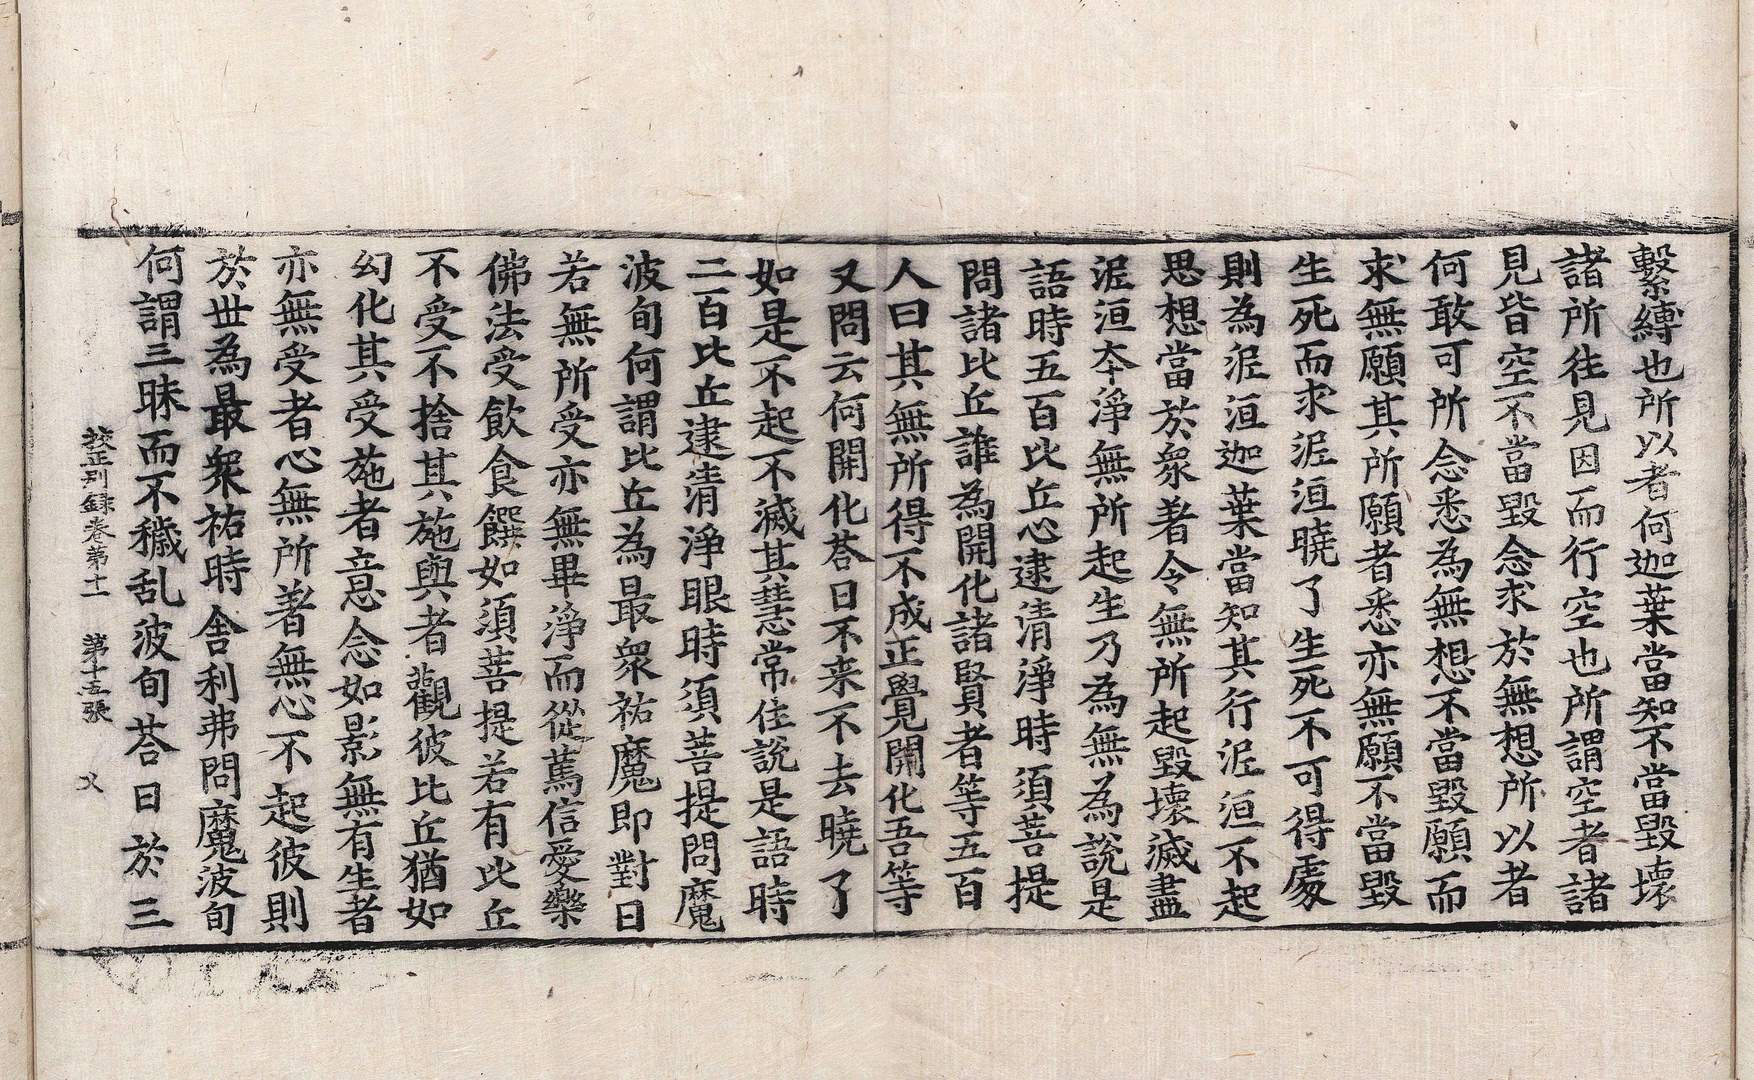 繫縛也所以者何迦葉當知不當毀壞
諸所往見因而行空也所謂空者諸
見皆空不當毀念求於無想所以者
何敢可所念悉為無想不當毀願而
求無願其所願者悉亦無願不當毀
生死而求泥洹曉了生死不可得處
則為泥洹迦葉當知其行泥洹不起
思想當於衆著令無所起毀壞滅盡
泥洹本淨無所起生乃為無為說是
語時五百比丘心逮清淨時須菩提
問諸比丘誰為開化諸賢者等五百
人曰其無所得不成正覺開化吾等
又問云何開化荅曰不来不去曉了
如是不起不滅其慧常住說是語時
二百比丘逮清淨眼時須菩提問魔
波旬何謂比丘為最衆祐魔即對曰
若無所受亦無畢淨而從篤信愛樂
佛法受飲食饌如須菩提若有比丘
不受不捨其施與者觀彼比丘猶如
幻化其受施者意念如影無有生者
亦無受者心無所著無心不起彼則
於世為最衆祐時舍利弗問魔波旬
何謂三昧而不穢乱波旬荅曰於三
校正别録卷第十一　第十五張　又